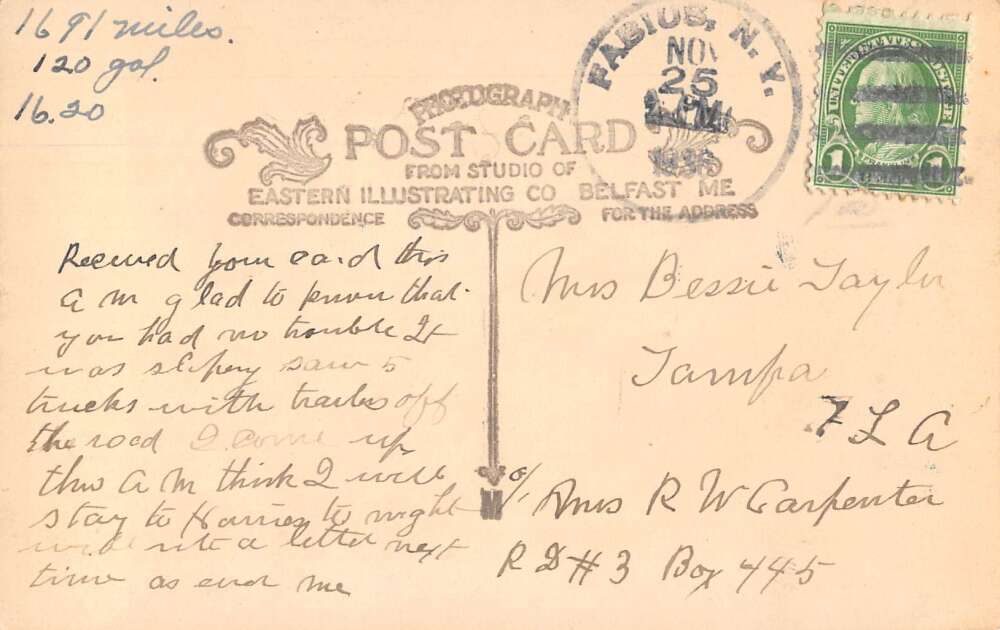 1691 miles.
120 gal.
16.20
FABIUS, N. Y.
NOV
25
PM
UNITED STATES POSTAGE
1 FRANKLIN 1
PHOTOGRAPH
POST CARD
FROM STUDIO OF
EASTERN ILLUSTRATING CO BELFAST ME
CORRESPONDENCE
FOR THE ADDRESS
Received your card this
A M glad to know that
you had no trouble It
was slipery saw 5
trucks with trailers off
the road I come up
this A M think I will
stay to to night
will rite a letter next
time as ever me
Mrs Bessie Taylor
Tampa
FLA
c/o Mrs R W Carpenter
R D # 3 Box 445